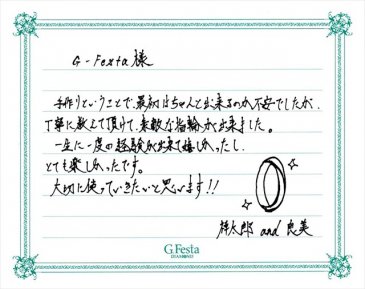 G-Festa 様
手作りということで、最初はちゃんと出来るのか不安でしたが、
丁寧に教えて頂けて、素敵な指輪が出来ました。
一生に一度の経験が出来て嬉しかったし、
とても楽しかったです。
大切に使っていきたいと思います!!
太郎 and 良美
G.Festa
DIAMOND